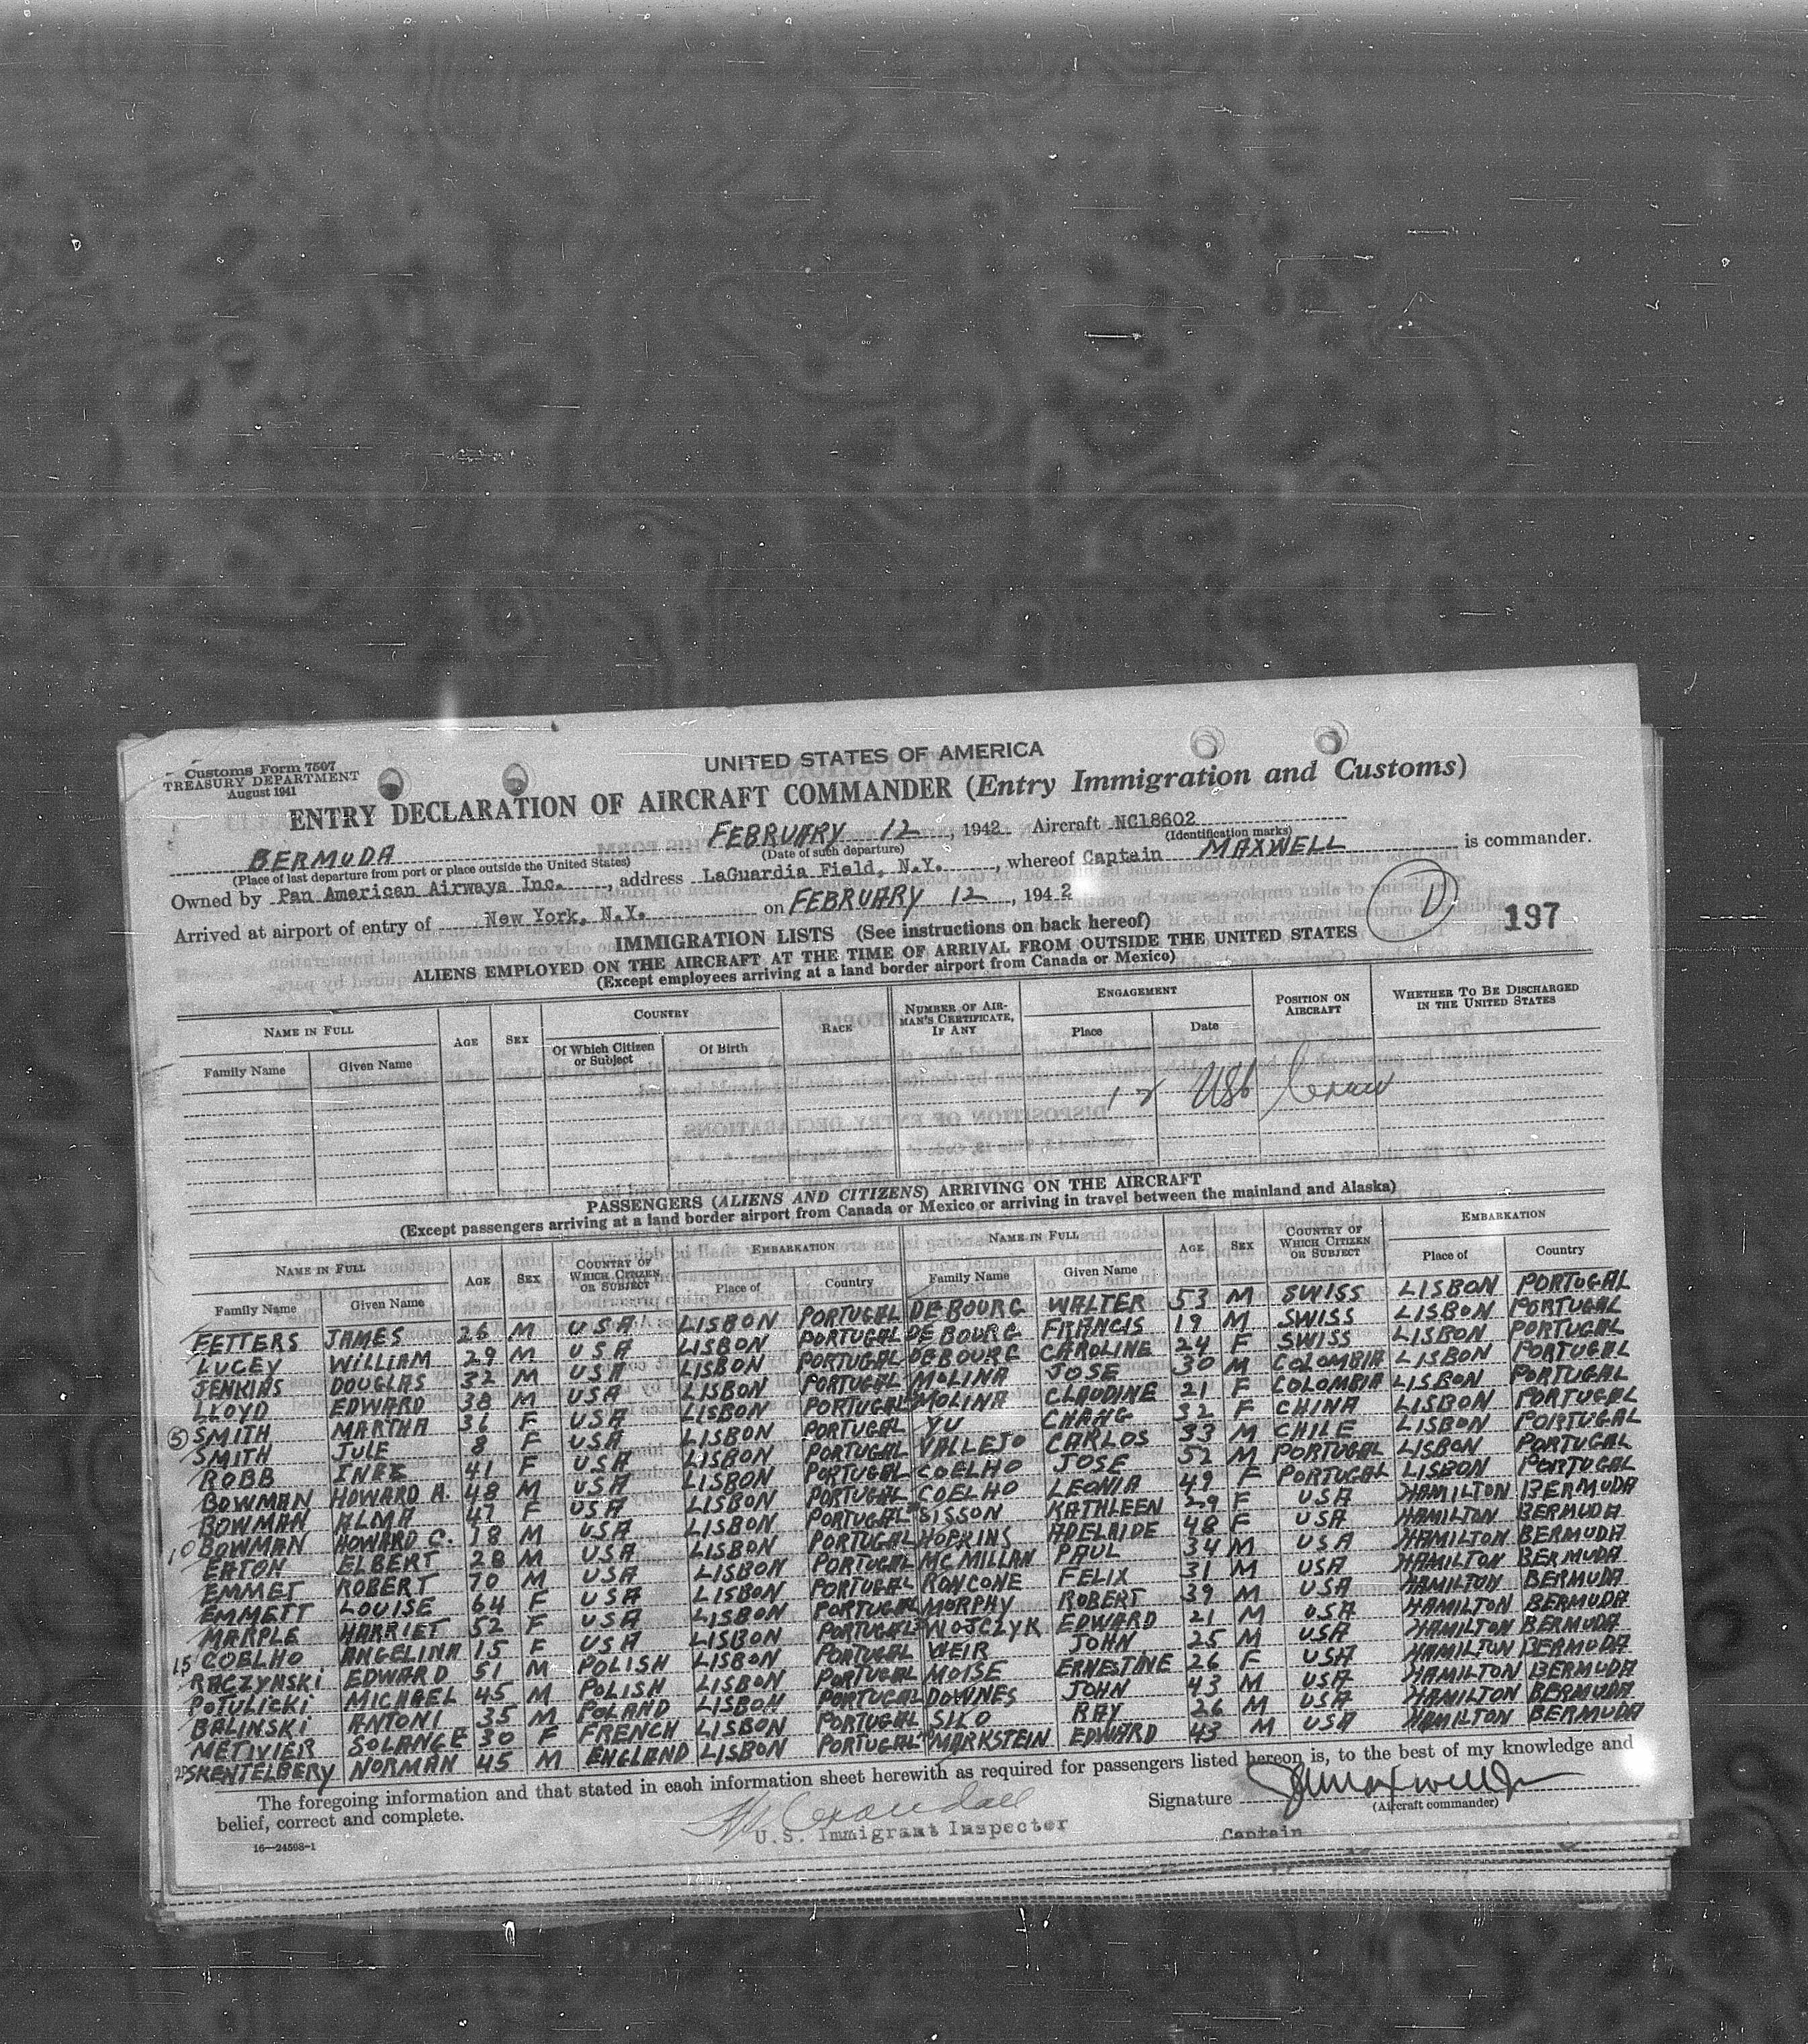 Customs Form 7507
TREASURY DEPARTMENT
August 1941
UNITED STATES OF AMERICA
ENTRY DECLARATION OF AIRCRAFT COMMANDER (Entry Immigration and Customs)
BERMUDA FEBRUARY 12, 1942 Aircraft NC18602
(Place of last departure from port or place outside the United States) (Date of such departure) (Identification marks)
Owned by Pan American Airways Inc., address LaGuardia Field, N.Y., whereof Captain MAXWELL is commander.
Arrived at airport of entry of New York, N.Y. on FEBRUARY 12, 1942
197
IMMIGRATION LISTS (See instructions on back hereof)
ALIENS EMPLOYED ON THE AIRCRAFT AT THE TIME OF ARRIVAL FROM OUTSIDE THE UNITED STATES
(Except employees arriving at a land border airport from Canada or Mexico)
NAME IN FULL AGE SEX COUNTRY RACE NUMBER OF AIRMAN'S CERTIFICATE, IF ANY ENGAGEMENT POSITION ON AIRCRAFT WHETHER TO BE DISCHARGED IN THE UNITED STATES
Family Name Given Name Of Which Citizen or Subject Of Birth Place Date
PASSENGERS (ALIENS AND CITIZENS) ARRIVING ON THE AIRCRAFT
(Except passengers arriving at a land border airport from Canada or Mexico or arriving in travel between the mainland and Alaska)
NAME IN FULL AGE SEX COUNTRY OF WHICH CITIZEN OR SUBJECT EMBARKATION NAME IN FULL AGE SEX COUNTRY OF WHICH CITIZEN OR SUBJECT EMBARKATION
Family Name Given Name Place of Country Family Name Given Name Place of Country
FETTERS JAMES 26 M USA LISBON PORTUGAL DEBOURG WALTER 53 M SWISS LISBON PORTUGAL
LUCEY WILLIAM 29 M USA LISBON PORTUGAL DEBOURG FRANCIS 19 M SWISS LISBON PORTUGAL
JENKINS DOUGLAS 32 M USA LISBON PORTUGAL DEBOURG CAROLINE 24 F SWISS LISBON PORTUGAL
LLOYD EDWARD 38 M USA LISBON PORTUGAL MOLINA JOSE 30 M COLOMBIA LISBON PORTUGAL
5 SMITH MARTHA 36 F USA LISBON PORTUGAL MOLINA CLAUDINE 21 F COLOMBIA LISBON PORTUGAL
SMITH JULE 8 F USA LISBON PORTUGAL YU CHANG 32 F CHINA LISBON PORTUGAL
ROBB INEZ 41 F USA LISBON PORTUGAL VALLEJO CARLOS 33 M CHILE LISBON PORTUGAL
BOWMAN HOWARD A. 48 M USA LISBON PORTUGAL COELHO JOSE 52 M PORTUGAL LISBON PORTUGAL
BOWMAN ALMA 47 F USA LISBON PORTUGAL COELHO LEONIA 49 F PORTUGAL LISBON PORTUGAL
10 BOWMAN HOWARD C. 18 M USA LISBON PORTUGAL SISSON KATHLEEN 29 F USA HAMILTON BERMUDA
EATON ELBERT 28 M USA LISBON PORTUGAL HOPKINS ADELAIDE 48 F USA HAMILTON BERMUDA
EMMET ROBERT 70 M USA LISBON PORTUGAL MCMILLAN PAUL 34 M USA HAMILTON BERMUDA
EMMETT LOUISE 64 F USA LISBON PORTUGAL RONCONE FELIX 31 M USA HAMILTON BERMUDA
MARPLE HARRIET 52 F USA LISBON PORTUGAL MORPHY ROBERT 39 M USA HAMILTON BERMUDA
15 COELHO ANGELINA 15 F USA LISBON PORTUGAL WOJCZYK EDWARD 21 M USA HAMILTON BERMUDA
RACZYNSKI EDWARD 51 M POLISH LISBON PORTUGAL WEIR JOHN 25 M USA HAMILTON BERMUDA
POTULICKI MICHAEL 45 M POLISH LISBON PORTUGAL MOISE ERNESTINE 26 F USA HAMILTON BERMUDA
BALINSKI ANTONI 35 M POLAND LISBON PORTUGAL DOWNES JOHN 43 M USA HAMILTON BERMUDA
METIVIER SOLANGE 30 F FRENCH LISBON PORTUGAL SILO RAY 26 M USA HAMILTON BERMUDA
20 SKENTELBERY NORMAN 45 M ENGLAND LISBON PORTUGAL MARKSTEIN EDWARD 43 M USA HAMILTON BERMUDA
The foregoing information and that stated in each information sheet herewith as required for passengers listed hereon is, to the best of my knowledge and
belief, correct and complete.
Signature
(Aircraft commander)
U.S. Immigrant Inspector
Captain
16—24598-1